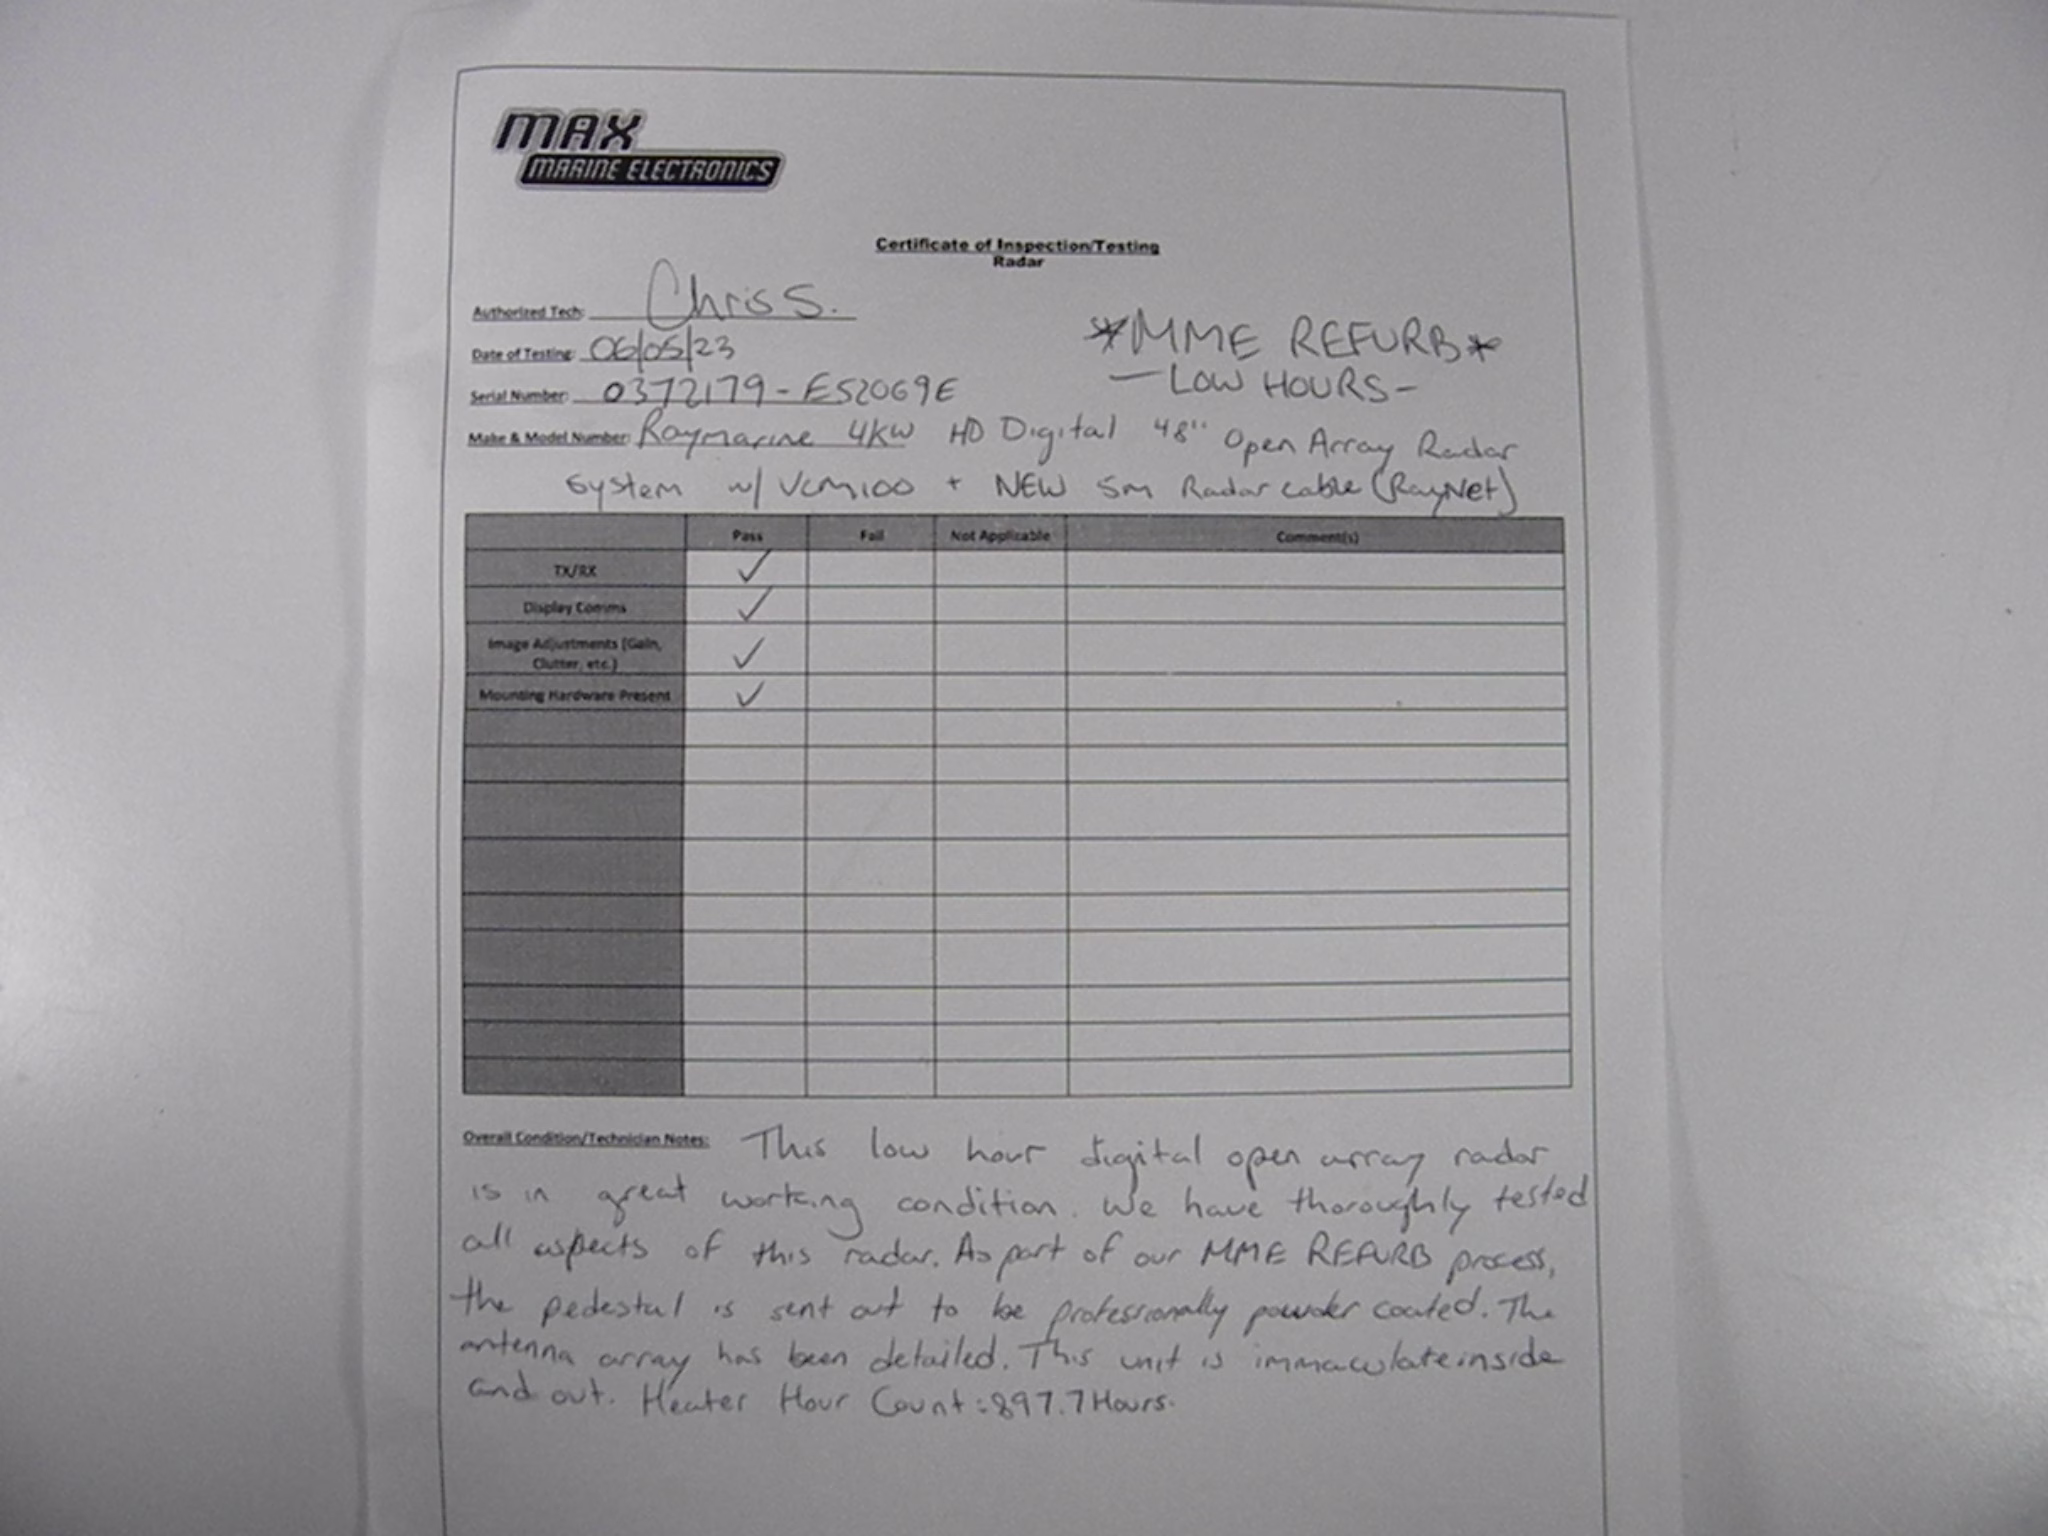 MAX
MARINE ELECTRONICS
Certificate of Inspection/Testing
Radar
Authorized Tech: Chris S.
Date of Testing: 06/05/23
Serial Number: 0372179-E52069E
*MME REFURB*
-LOW HOURS-
Make & Model Number: Raymarine 4KW HD Digital 48" Open Array Radar
System w/ VCM100 + NEW 5m Radar cable (RayNet)
Pass Fail Not Applicable Comment(s)
TX/RX ✓
Display Comms ✓
Image Adjustments (Gain,
Clutter, etc.) ✓
Mounting Hardware Present ✓
Overall Condition/Technician Notes: This low hour digital open array radar
is in great working condition. We have thoroughly tested
all aspects of this radar. As part of our MME REFURB process,
the pedestal is sent out to be professionally powder coated. The
antenna array has been detailed. This unit is immaculate inside
and out. Heater Hour Count: 897.7 Hours.